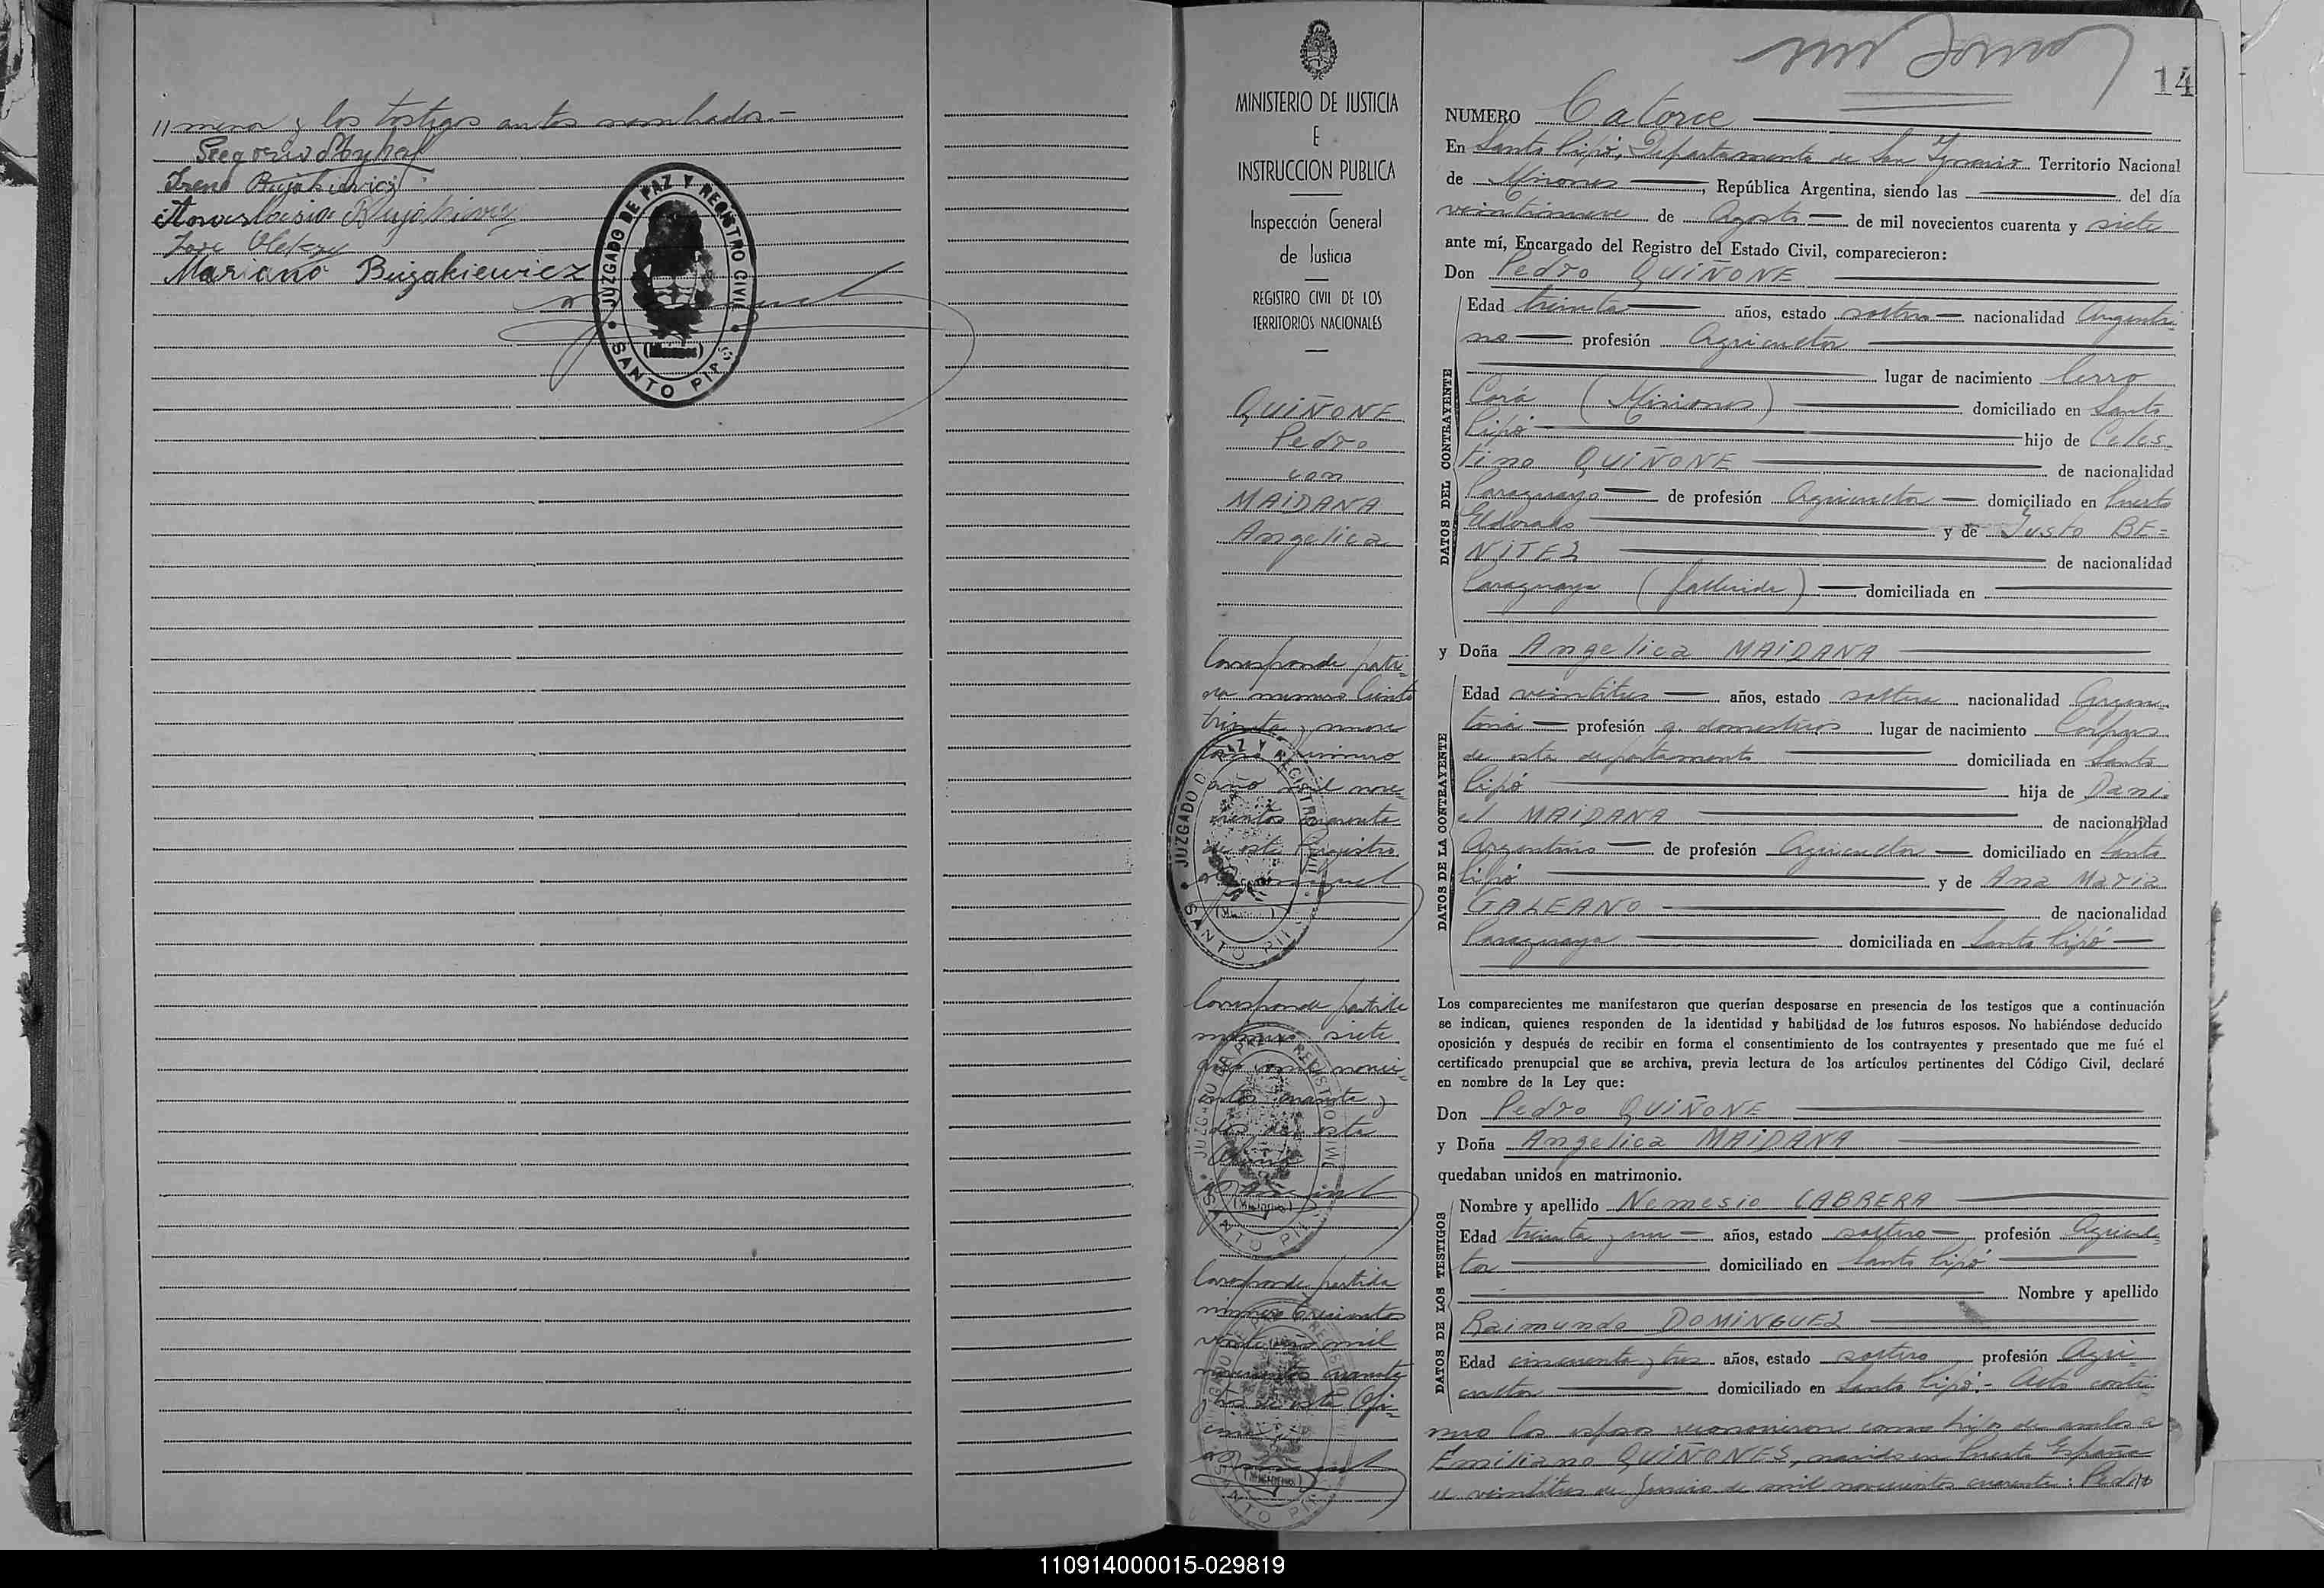 //mera y los testigos antes nombrados.-
Irene
Mariano Buzakiewicz
JUZGADO DE PAZ Y REGISTRO CIVIL
(Misiones)
SANTO PIPO
MINISTERIO DE JUSTICIA
E
INSTRUCCION PUBLICA
Inspección General
de Justicia
REGISTRO CIVIL DE LOS
TERRITORIOS NACIONALES
QUIÑONE
Pedro
con
MAIDANA
Angelica
Corresponde parti-
da numero Ciento
treinta y nueve
tomo primero
año mil nove-
cientos cuarenta
de este Registro
Corresponde partida
número siete
año mil novecien-
entos cuarenta y
dos de esta
Corresponde partida
número trescientos
mil
novecientos cuarenta
y tres de esta Ofi-
cina
14
NUMERO Catorce
En Santo Pipó, Departamento de San Ignacio Territorio Nacional
de Misiones, República Argentina, siendo las del día
veintinueve de Agosto de mil novecientos cuarenta y siete
ante mí, Encargado del Registro del Estado Civil, comparecieron:
Don Pedro QUIÑONE
Edad treinta años, estado soltero nacionalidad Argenti-
no profesión Agricultor
lugar de nacimiento Cerro
Corá (Misiones) domiciliado en Santo
Pipó hijo de Celes-
tino QUIÑONE de nacionalidad
Paraguayo de profesión Agricultor domiciliado en Puerto
Eldorado y de Justo BE=
NITEZ de nacionalidad
Paraguaya (fallecida) domiciliada en
y Doña Angelica MAIDANA
Edad veintitres años, estado soltera nacionalidad Argen-
tina profesión q. domesticos lugar de nacimiento Corpus
de este departamento domiciliada en Santo
Pipó hija de Dani-
el MAIDANA de nacionalidad
Argentino de profesión Agricultor domiciliado en Santo
Pipó y de Ana Maria
GALEANO de nacionalidad
Paraguaya domiciliada en Santo Pipó
Los comparecientes me manifestaron que querían desposarse en presencia de los testigos que a continuación
se indican, quienes responden de la identidad y habilidad de los futuros esposos. No habiéndose deducido
oposición y después de recibir en forma el consentimiento de los contrayentes y presentado que me fué el
certificado prenupcial que se archiva, previa lectura de los artículos pertinentes del Código Civil, declaré
en nombre de la Ley que:
Don Pedro QUIÑONE
y Doña Angelica MAIDANA
quedaban unidos en matrimonio.
Nombre y apellido Nemesio CABRERA
Edad treinta y un años, estado soltero profesión Agricul-
tor domiciliado en Santo Pipó
Nombre y apellido
Raimundo DOMINGUEZ
Edad cincuenta y tres años, estado soltero profesión Agri-
cultor domiciliado en Santo Pipó.- Acto conti-
nuo los esposos reconocieron como hijos de ambos a
Emiliano QUIÑONES, nacido en Puerto España
el veintitres de Junio de mil novecientos cuarenta; Pedro
DATOS DEL CONTRAYENTE
DATOS DE LA CONTRAYENTE
DATOS DE LOS TESTIGOS
110914000015-029819